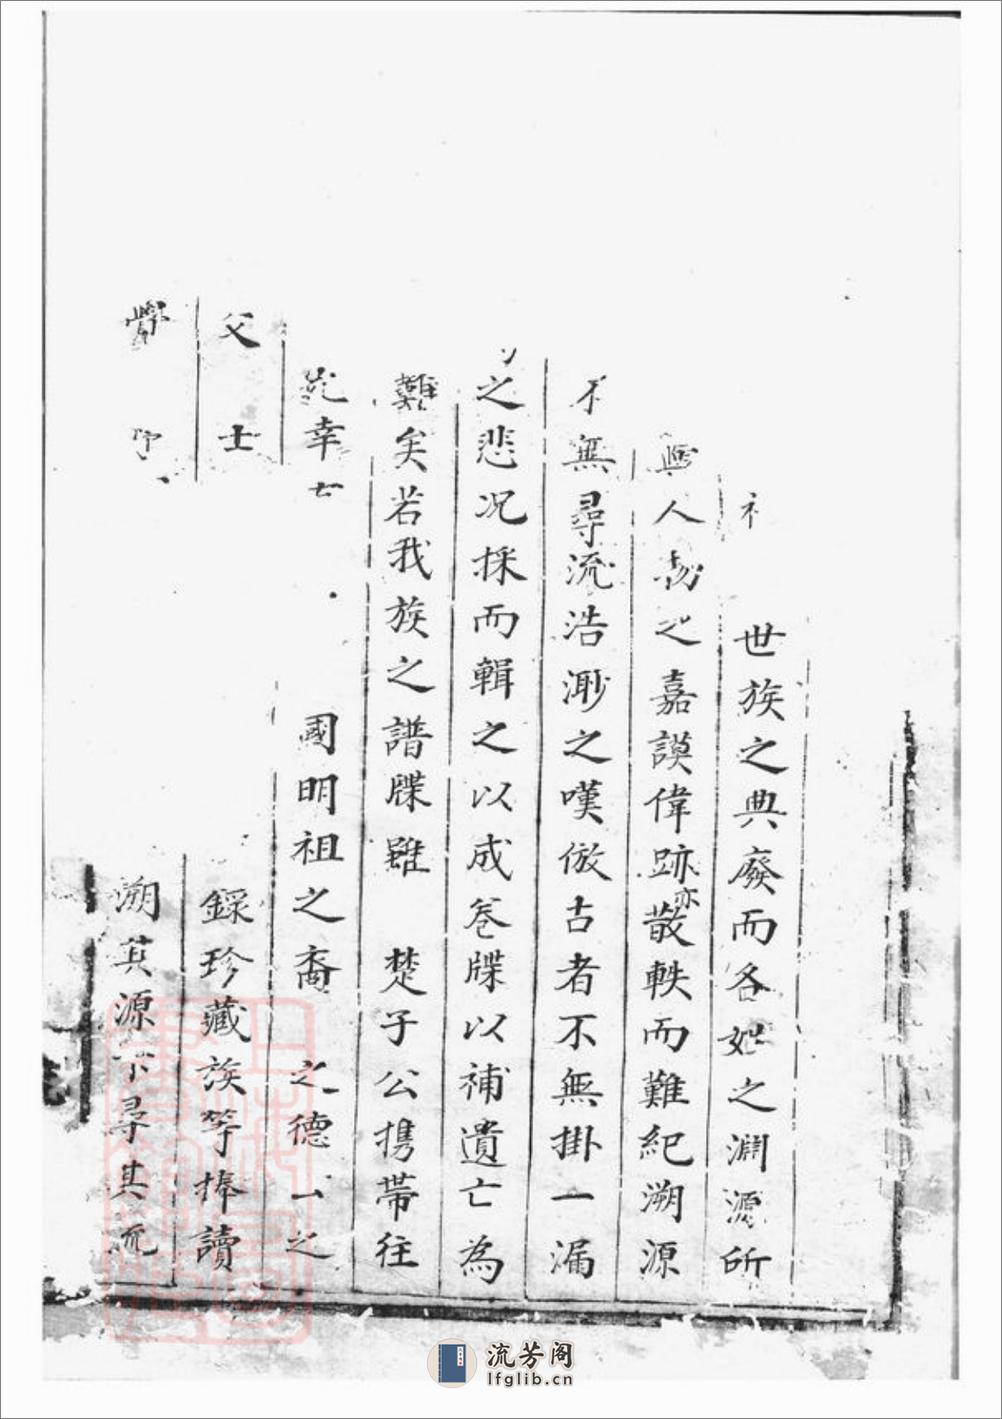 世族之典廢而各如之淵源所
人物之嘉謨偉跡亦散軼而難紀溯源
無尋流浩渺之嘆倣古者不無掛一漏
之悲况採而輯之以成卷牒以補遺亡為
難矣若我族之譜牒雖 楚子公携帶往
幸 國明祖之裔 之德 之
父 士 録珍藏族等捧讀
溯其源下尋其流
流芳阁
lfglib.cn